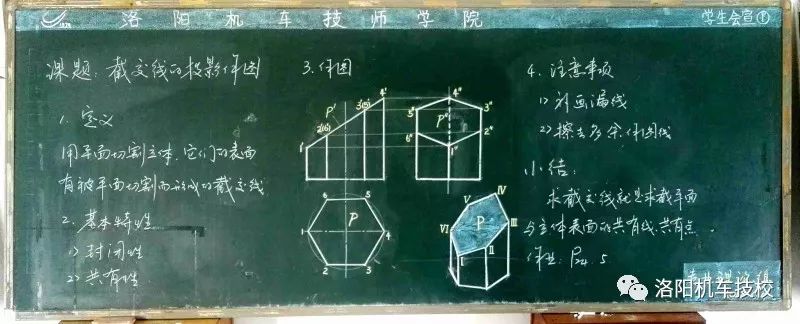 洛阳机车技师学院
学生会宣
课题：截交线的投影作图
1. 定义
用平面切割立体，它们的表面
有被平面切割而形成的截交线
2. 基本特性
1) 封闭性
2) 共有性
3. 作图
P'
1'
2'(6')
3'(5')
4'
1
2
3
4
5
6
P
P"
1"
2"
3"
4"
5"
6"
P
I
II
III
IV
V
VI
4. 注意事项
1) 别画漏线
2) 擦去多余作图线
小结：
求截交线就是求截平面
与立体表面的共有线、共有点.
作业：P24. 5
洛阳机车技校